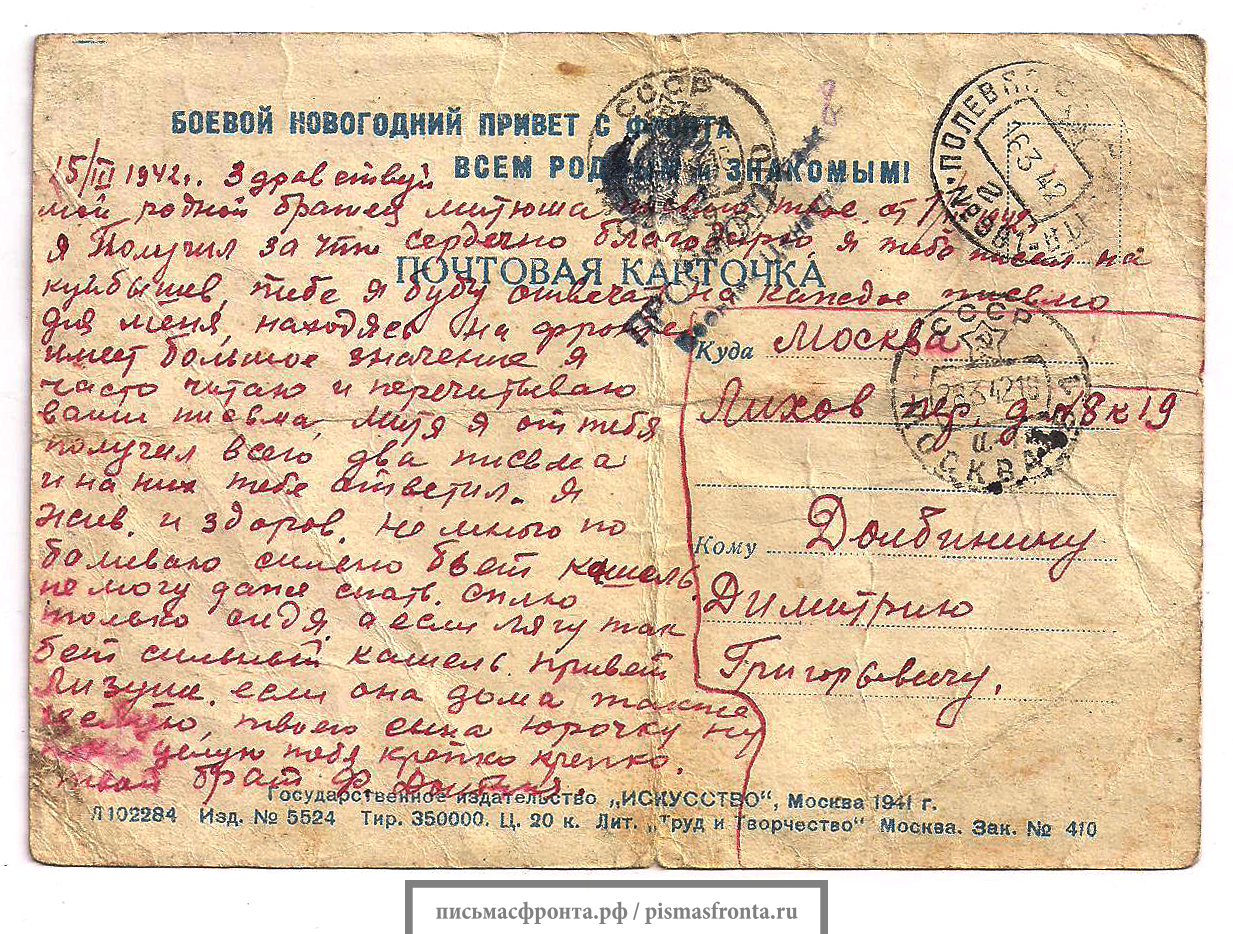 БОЕВОЙ НОВОГОДНИЙ ПРИВЕТ С ФРОНТА
ВСЕМ РОДНЫМ И ЗНАКОМЫМ!
15/III 1942г. Здравствуй
мой родной братец Митюша твое от 1942г
я Получил за что сердечно благодарю, я тебе писал на
ПОЧТОВАЯ КАРТОЧКА
куйбышев, тебе я буду отвечат на каждое писмо
для меня, находясь на фронте
имеет большое значение я
часто читаю и перечитываю
ваши писма, Митя я от тебя
получил всего два писма
и на них тебе ответил. Я
жив и здоров. немного по
баливаю силено бьет кашель,
не могу даже спать. сплю
только сидя, а если лягу так
бет сильный кашель. привет
Лизуше. если она дома также
целую, твоего сына Юрочку ну
целую тебя крепко крепко.
твой брат Ф. Долбинин.
Куда Москва
Лихов пер. д. №8 к 19
Кому Долбинину
Димитрию
Григорьевичу.
СССР
ПОЛЕВАЯ
16 3 42
СССР
28 3 42 16
МОСКВА
Государственное издательство „ИСКУССТВО“, Москва 1941 г.
Л102284 Изд. № 5524 Тир. 350000. Ц. 20 к. Лит. „Труд и Творчество“ Москва. Зак. № 410
письмасфронта.рф / pismasfronta.ru